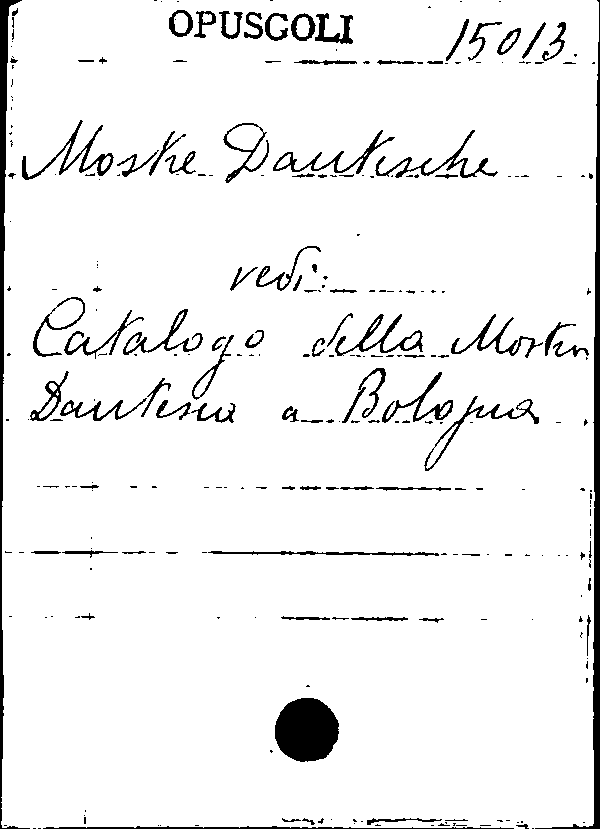 OPUSCOLI 15013.
Mostre Dantesche
vedi:
Catalogo della Mostra
Dantesca a Bologna